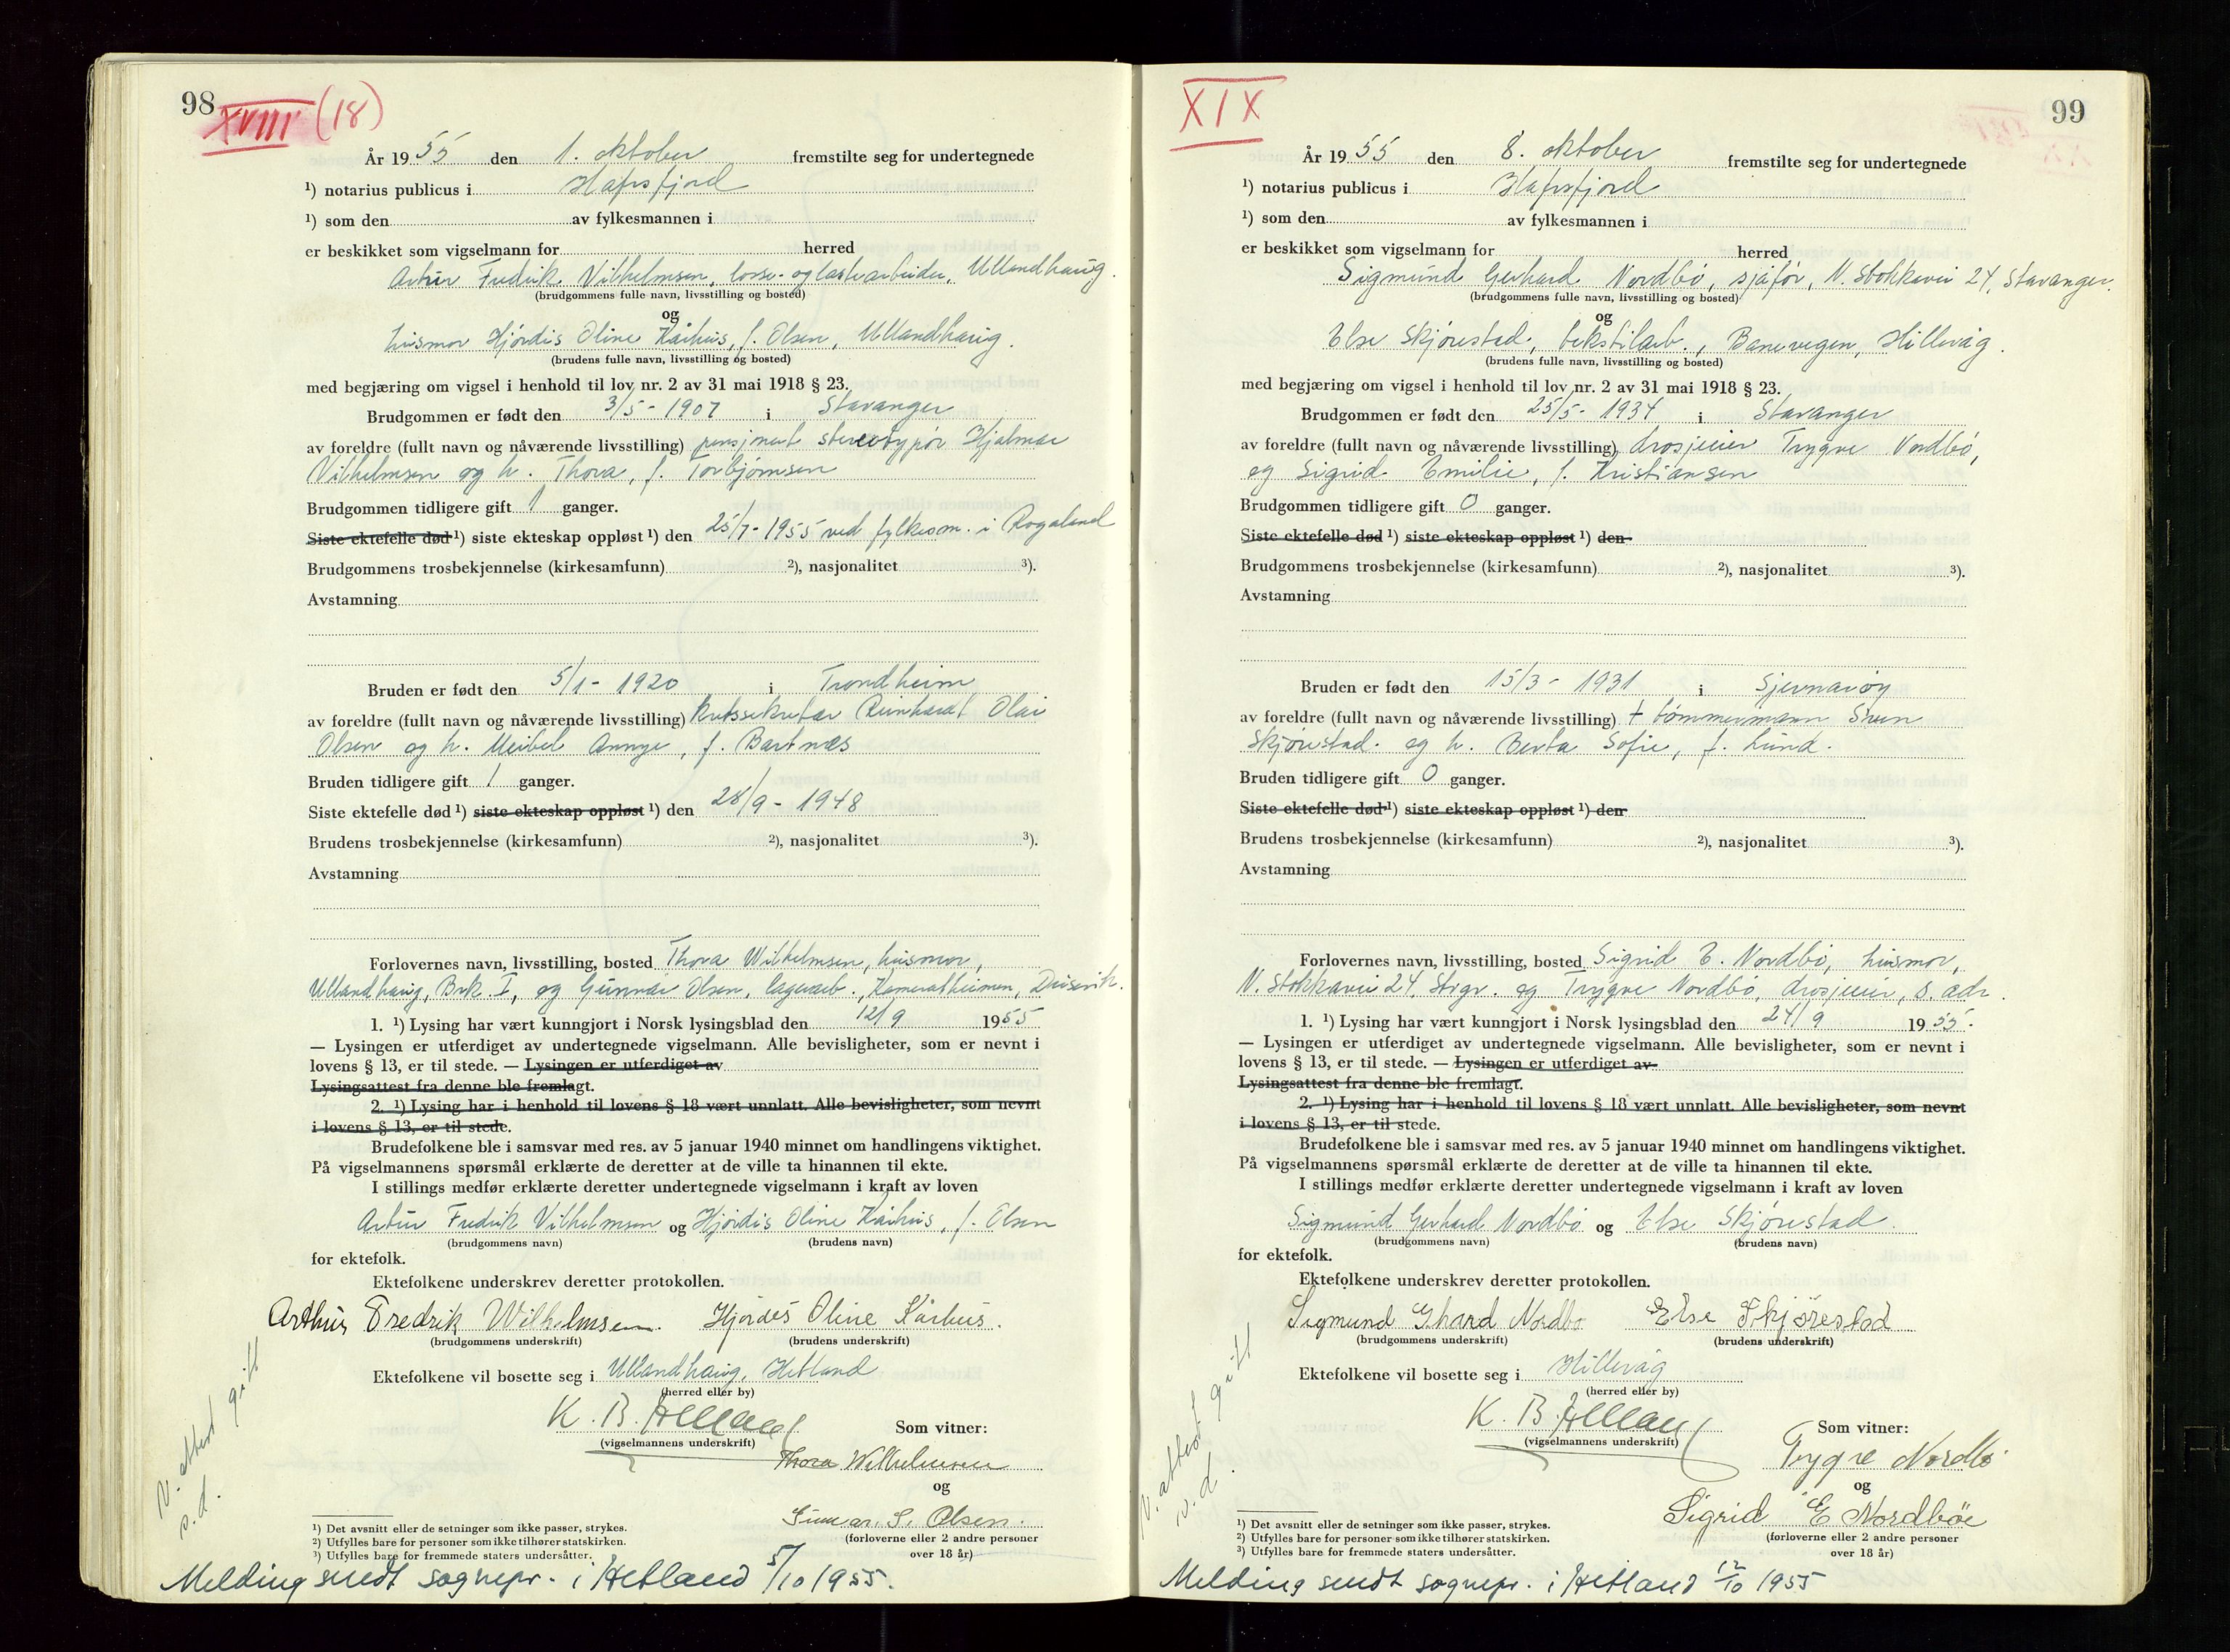 98
XVIII (18)
År 1955 den 1. oktober fremstilte seg for undertegnede
¹) notarius publicus i Hafrsfjord
¹) som den av fylkesmannen i
er beskikket som vigselmann for herred
Artur Fredrik Vilhelmsen, losse- og lastearbeider, Ullandhaug.
(brudgommens fulle navn, livsstilling og bosted)
og
husmor Hjördis Oline Kårhus, f. Olsen, Ullandhaug.
(brudens fulle navn, livsstilling og bosted)
med begjæring om vigsel i henhold til lov nr. 2 av 31 mai 1918 § 23.
Brudgommen er født den 3/5 - 1907 i Stavanger
av foreldre (fullt navn og nåværende livsstilling) pensjonert stereotypör Hjalmar
Vilhelmsen og h. Thora, f. Torbjörnsen
Brudgommen tidligere gift 1 ganger.
Siste ektefelle død ¹) siste ekteskap oppløst ¹) den 25/7 - 1955 ved fylkesm. i Rogaland
Brudgommens trosbekjennelse (kirkesamfunn) ²), nasjonalitet ³).
Avstamning
Bruden er født den 5/1 - 1920 i Trondheim
av foreldre (fullt navn og nåværende livsstilling) kretssekretær Reinhardt Olai
Olsen og h. Meibel Annye, f. Bartnæs
Bruden tidligere gift 1 ganger.
Siste ektefelle død ¹) siste ekteskap oppløst ¹) den 28/9 - 1948
Brudens trosbekjennelse (kirkesamfunn) ²), nasjonalitet ³).
Avstamning
Forlovernes navn, livsstilling, bosted Thora Wilhelmsen, husmor,
Ullandhaug, Brk. I, og Gunnar Olsen, lagerarb., Kameratheimen, Dusavik.
1. ¹) Lysing har vært kunngjort i Norsk lysingsblad den 12/9 1955
— Lysingen er utferdiget av undertegnede vigselmann. Alle bevisligheter, som er nevnt i
lovens § 13, er til stede. — Lysingen er utferdiget av
Lysingsattest fra denne ble fremlagt.
2. ¹) Lysing har i henhold til lovens § 18 vært unnlatt. Alle bevisligheter, som nevnt
i lovens § 13, er til stede.
Brudefolkene ble i samsvar med res. av 5 januar 1940 minnet om handlingens viktighet.
På vigselmannens spørsmål erklærte de deretter at de ville ta hinannen til ekte.
I stillings medfør erklærte deretter undertegnede vigselmann i kraft av loven
Artur Fredrik Vilhelmsen og Hjördis Oline Kårhus, f. Olsen
(brudgommens navn) (brudens navn)
for ektefolk.
Ektefolkene underskrev deretter protokollen.
Arthur Fredrik Wilhelmsen. Hjørdes Oline Kårhus.
(brudgommens underskrift) (brudens underskrift)
Ektefolkene vil bosette seg i Ullandhaug, Hetland
(herred eller by)
K. B. Helland
(vigselmannens underskrift)
Som vitner:
Thora Wilhelmsen
og
Gunnar S. Olsen.
(forloverne eller 2 andre personer
over 18 år)
V. attest gitt
s.d.
¹) Det avsnitt eller de setninger som ikke passer, strykes.
²) Utfylles bare for personer som ikke tilhører statskirken.
³) Utfylles bare for fremmede staters undersåtter.
Melding sendt sognepr. i Hetland 5/10 1955.
XIX
99
År 1955 den 8. oktober fremstilte seg for undertegnede
¹) notarius publicus i Hafrsfjord
¹) som den av fylkesmannen i
er beskikket som vigselmann for herred
Sigmund Gerhard Nordbö, sjåfør, N. Stokkavei 24, Stavanger.
(brudgommens fulle navn, livsstilling og bosted)
og
Else Skjörestad, tekstilarb., Banevegen, Hillevåg.
(brudens fulle navn, livsstilling og bosted)
med begjæring om vigsel i henhold til lov nr. 2 av 31 mai 1918 § 23.
Brudgommen er født den 25/5 - 1934 i Stavanger
av foreldre (fullt navn og nåværende livsstilling) drosjeeier Trygve Nordbö,
og Sigrid Emilie, f. Kristiansen
Brudgommen tidligere gift 0 ganger.
Siste ektefelle død ¹) siste ekteskap oppløst ¹) den
Brudgommens trosbekjennelse (kirkesamfunn) ²), nasjonalitet ³).
Avstamning
Bruden er født den 15/3 - 1931 i Sjernaröy
av foreldre (fullt navn og nåværende livsstilling) + tömmermann Sven
Skjörestad og h. Berta Sofie, f. Lund.
Bruden tidligere gift 0 ganger.
Siste ektefelle død ¹) siste ekteskap oppløst ¹) den
Brudens trosbekjennelse (kirkesamfunn) ²), nasjonalitet ³).
Avstamning
Forlovernes navn, livsstilling, bosted Sigrid E. Nordbö, husmor,
N. Stokkavei 24, Stvgr. og Trygve Nordbö, drosjeeier, s. adr.
1. ¹) Lysing har vært kunngjort i Norsk lysingsblad den 24/9 1955.
— Lysingen er utferdiget av undertegnede vigselmann. Alle bevisligheter, som er nevnt i
lovens § 13, er til stede. — Lysingen er utferdiget av
Lysingsattest fra denne ble fremlagt.
2. ¹) Lysing har i henhold til lovens § 18 vært unnlatt. Alle bevisligheter, som nevnt
i lovens § 13, er til stede.
Brudefolkene ble i samsvar med res. av 5 januar 1940 minnet om handlingens viktighet.
På vigselmannens spørsmål erklærte de deretter at de ville ta hinannen til ekte.
I stillings medfør erklærte deretter undertegnede vigselmann i kraft av loven
Sigmund Gerhard Nordbö og Else Skjörestad.
(brudgommens navn) (brudens navn)
for ektefolk.
Ektefolkene underskrev deretter protokollen.
Sigmund Ghard Nordbo Else Skjörestad
(brudgommens underskrift) (brudens underskrift)
Ektefolkene vil bosette seg i Hillevåg
(herred eller by)
K. B. Helland
(vigselmannens underskrift)
Som vitner:
Trygve Nordbö
og
Sigrid E Nordbøe
(forloverne eller 2 andre personer
over 18 år)
V. attest gitt
s.d.
¹) Det avsnitt eller de setninger som ikke passer, strykes.
²) Utfylles bare for personer som ikke tilhører statskirken.
³) Utfylles bare for fremmede staters undersåtter.
Melding sendt sognepr. i Hetland 12/10 1955